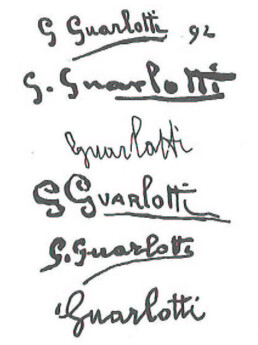 G Guarlotti 92
G. Guarlotti
Guarlotti
G GVARLOTTi
G. Guarlotti
Guarlotti